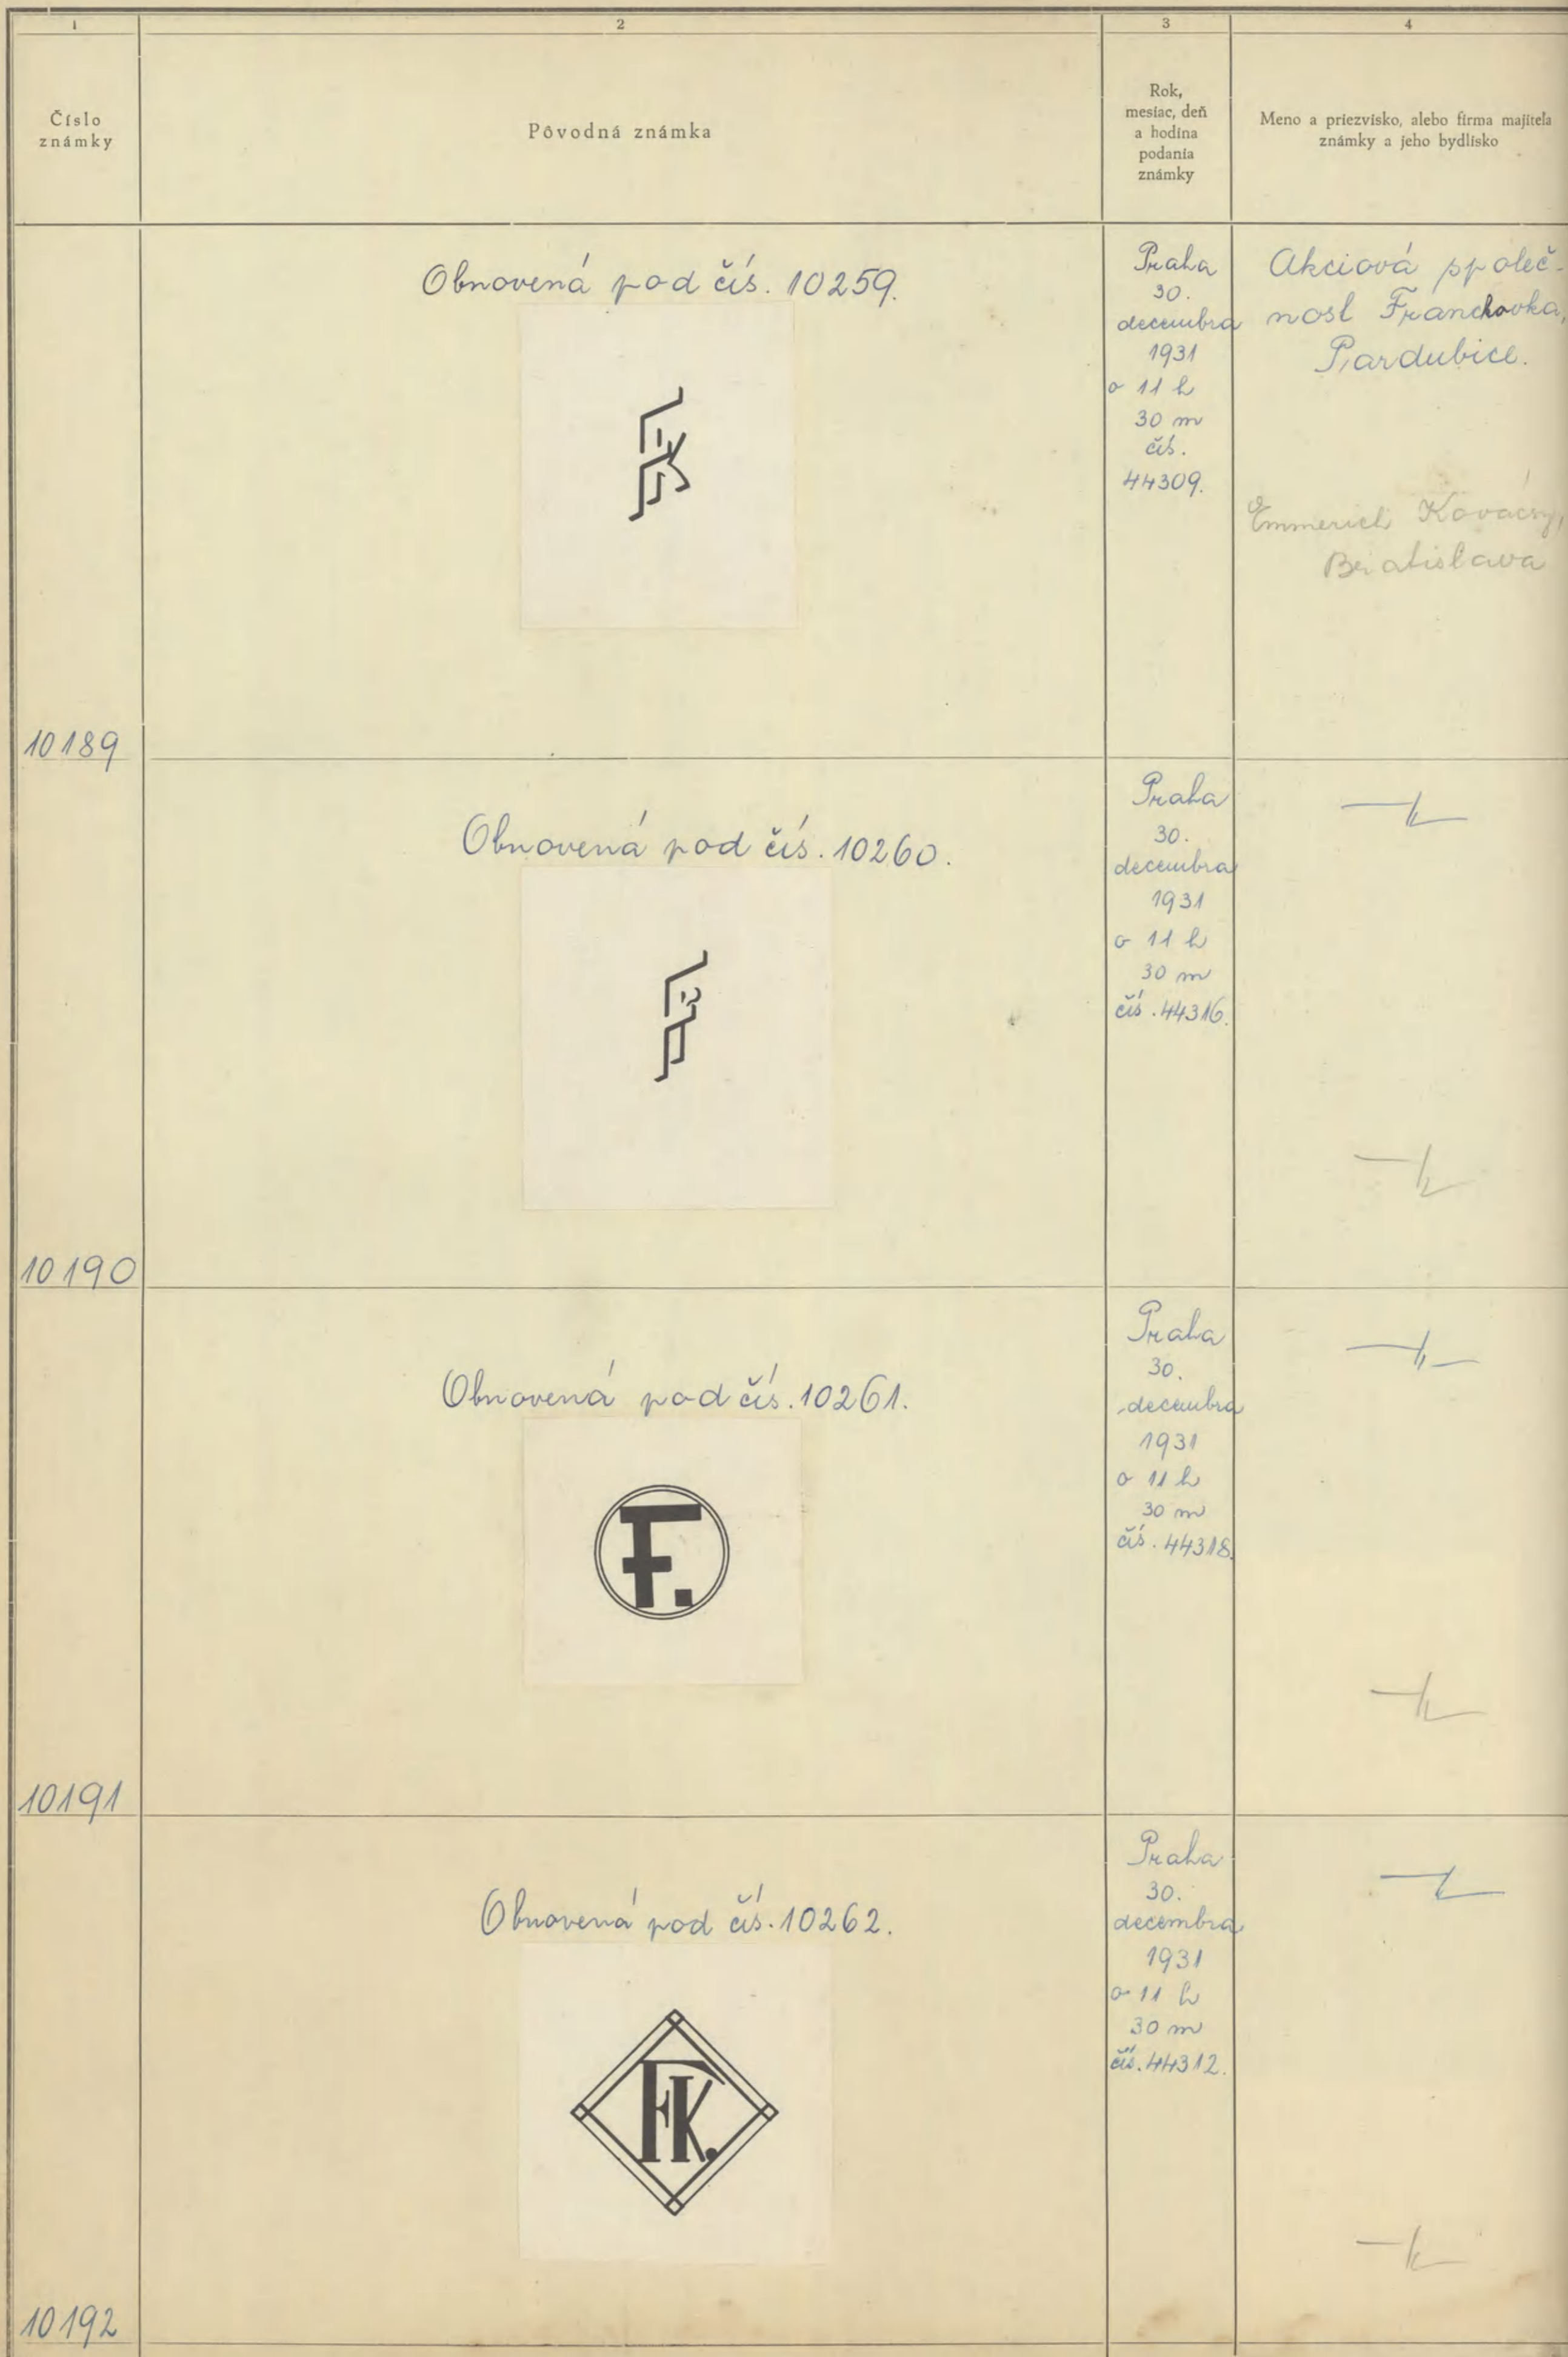 1
2
3
4
Číslo
známky
Pôvodná známka
Rok,
mesiac, deň
a hodina
podania
známky
Meno a priezvisko, alebo firma majiteľa
známky a jeho bydlisko
Obnovená pod čís. 10259.
Praha
30.
decembra
1931
o 11 h
30 m
čís.
44309.
Akciová společ-
nost Franckovka,
Pardubice.
Emmerich Kovácsy,
Bratislava
10189
Obnovená pod čís. 10260.
Praha
30.
decembra
1931
o 11 h
30 m
čís. 44316.
10190
Obnovená pod čís. 10261.
F.
Praha
30.
decembra
1931
o 11 h
30 m
čís. 44318.
10191
Obnovená pod čís. 10262.
FK.
Praha
30.
decembra
1931
o 11 h
30 m
čís. 44312.
10192